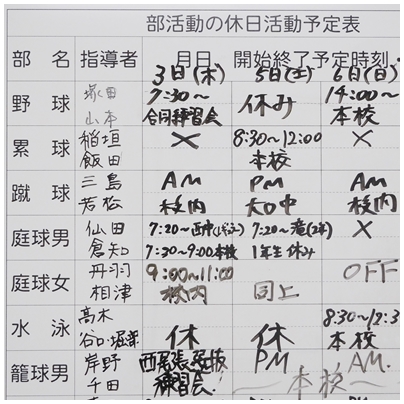 部活動の休日活動予定表
部 名 指導者 月日 開始終了予定時刻
3日(木) 5日(土) 6日(日)
野 球 塚田 山本 7:30〜 合同練習会 休み 14:00〜 本校
累 球 稲垣 飯田 × 8:30〜12:00 本校 ×
蹴 球 三島 若松 AM 校内 PM 大口中 AM 校内
庭球男 仙田 倉知 7:20〜 7:30〜9:00本校 7:20〜 1年生休み ×
庭球女 丹羽 相津 9:00〜11:00 校内 同上 OFF
水 泳 高木 谷口・堀場 休 休 8:30〜12:3 本校
籠球男 岸野 千田 西尾張選抜 練習会 PM AM 〜本校〜